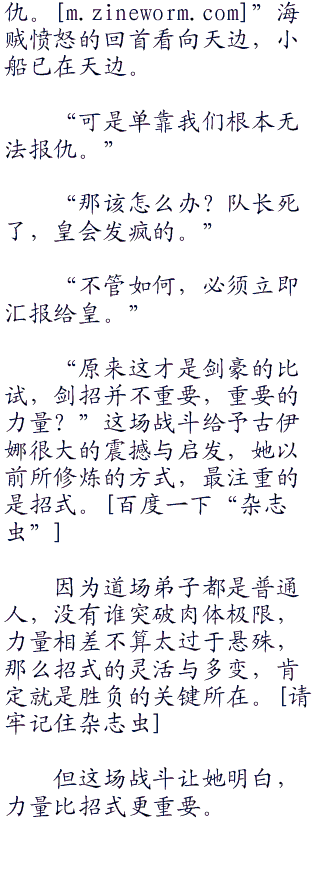 仇。[m.zineworm.com]”海
贼愤怒的回首看向天边，小
船已在天边。
“可是单靠我们根本无
法报仇。”
“那该怎么办？队长死
了，皇会发疯的。”
“不管如何，必须立即
汇报给皇。”
“原来这才是剑豪的比
试，剑招并不重要，重要的
力量？”这场战斗给予古伊
娜很大的震撼与启发，她以
前所修炼的方式，最注重的
是招式。[百度一下“杂志
虫”]
因为道场弟子都是普通
人，没有谁突破肉体极限，
力量相差不算太过于悬殊，
那么招式的灵活与多变，肯
定就是胜负的关键所在。[请
牢记住杂志虫]
但这场战斗让她明白，
力量比招式更重要。